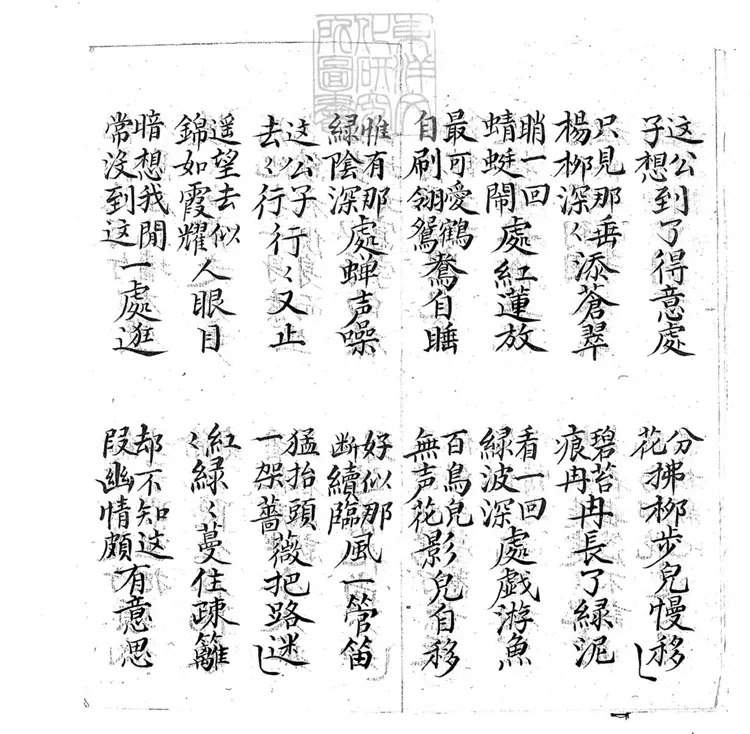 东洋文化研究所圖書
这公子想到了得意處
分花拂柳步兒慢移
只見那垂楊柳深〻添蒼翠
碧苔痕冉冉長了綠泥
睄一回蜻蜓鬧處紅蓮放
看一回綠波深處戯游魚
最可愛鶴自刷翎鴛鴦自睡
百鳥兒無声花影兒自移
惟有那綠陰深處蟬声噪
好似那断續臨風一管笛
这公子去〻行行〻又止
猛抬頭一架薔薇把路迷
遥望去似錦如霞耀人眼目
紅〻綠〻蔓住疎籬
暗想我閒常沒到这一處逛
却不知这段幽情頗有意思